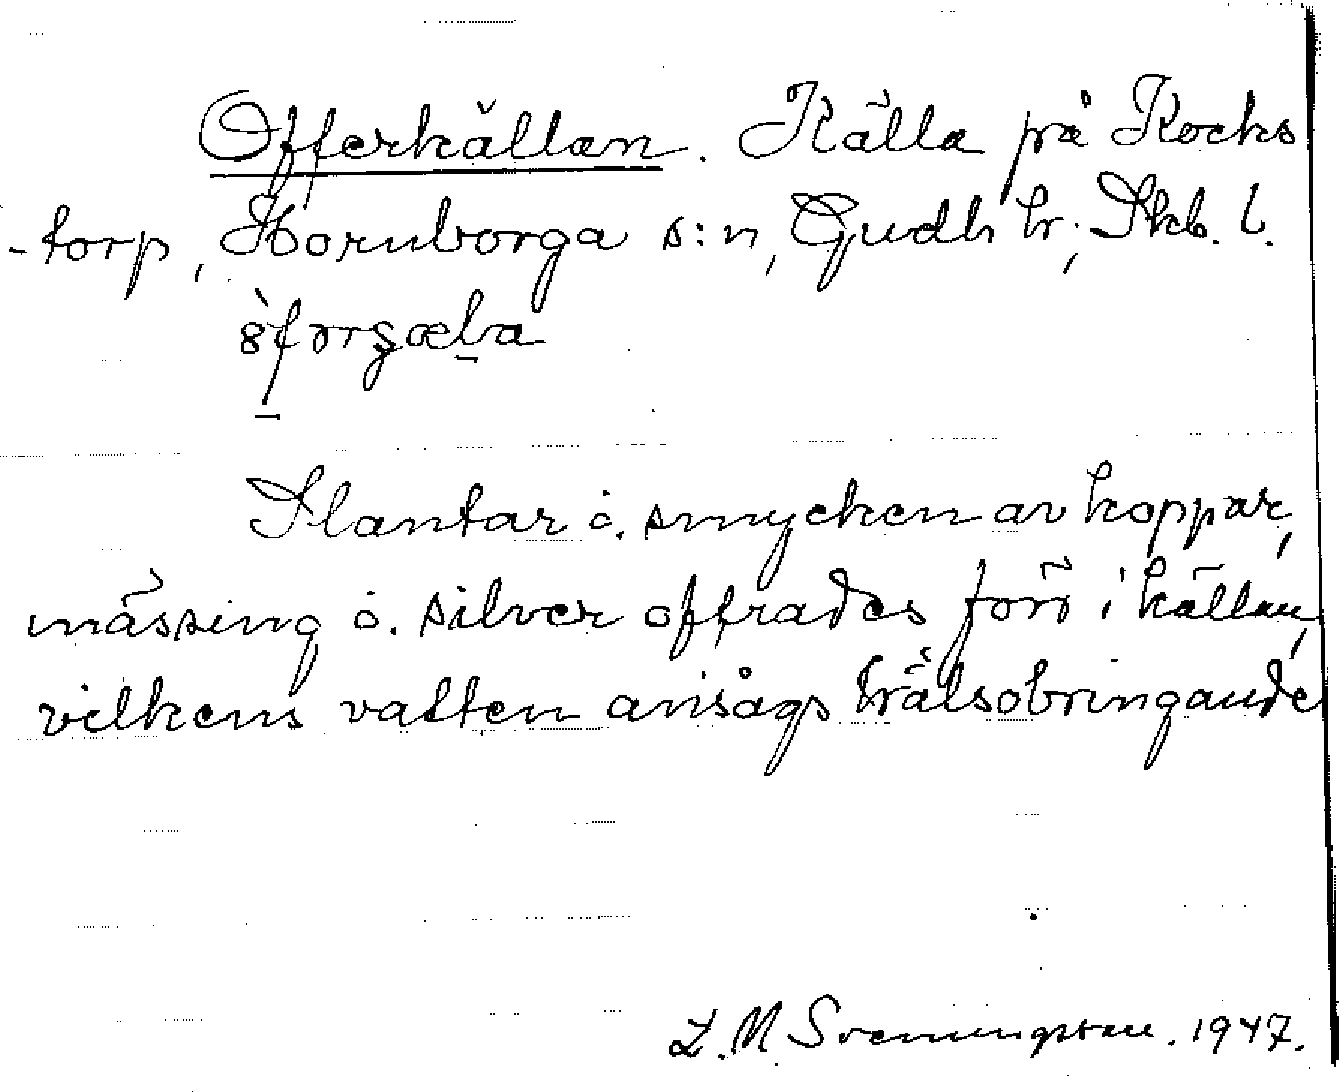 Offerkällan. Källa på Kocks
-torp, Hornborga s:n, Gudh hr, Skb. l.

Slantar o. smycken av koppar,
mässing o. silver offrades förr i källan,
vilkens vatten ansågs hälsobringande
L. M. Svenungsson. 1947.